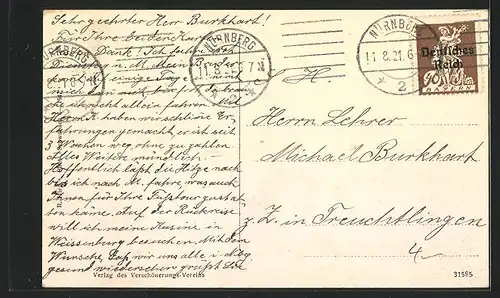 Sehr geehrter Herr Burkhart!
Für Ihre beiden Karten
Dank! Ich fahre
Dienstag n. M. Mein Bruder
kommt einige Tage
allein fahren. Mit
haben wir schlimme Er-
fahrungen gemacht, er ist seit
3 Wochen weg, ohne zu zahlen.
Alles Weitere mündlich. –
Hoffentlich läßt die Hitze nach
bis ich nach M. fahre, was auch
Ihnen für Ihre Fußtour zustat-
ten käme. Auf der Rückreise
will ich meine Kusine in
Weissenburg besuchen. Mit dem
Wunsche, daß wir uns alle i. Mbg
gesund wiedersehen grüßt Sie
Verlag des Verschönerungs-Vereins
NÜRNBERG
NÜRNBERG
11.8.21.6-7N
* 2 c
NÜRNBERG
11.8.21.6
* 2
Deutsches
Reich
90
BAYERN
H.
Herrn Lehrer
Michael Burkhart
z. Z. in Treuchtlingen
4.–
31585